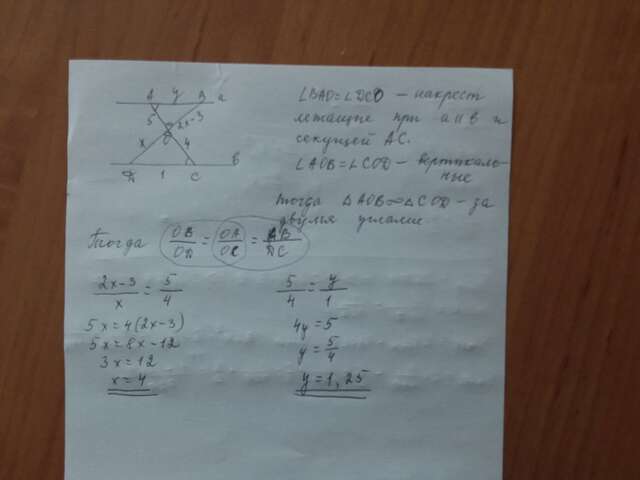 A y B a
5 2x-3
O
x 4
D 1 C b
∠BAO=∠DCO – накрест
лежащие при a∥b и
секущей AC.
∠AOB=∠COD – вертикаль-
ные
Тогда △AOB∞△COD – за
двумя углами.
Тогда OB/OD = OA/OC = AB/DC
2x-3/x = 5/4
5x=4(2x-3)
5x=8x-12
3x=12
x=4
5/4 = y/1
4y=5
y=5/4
y=1,25